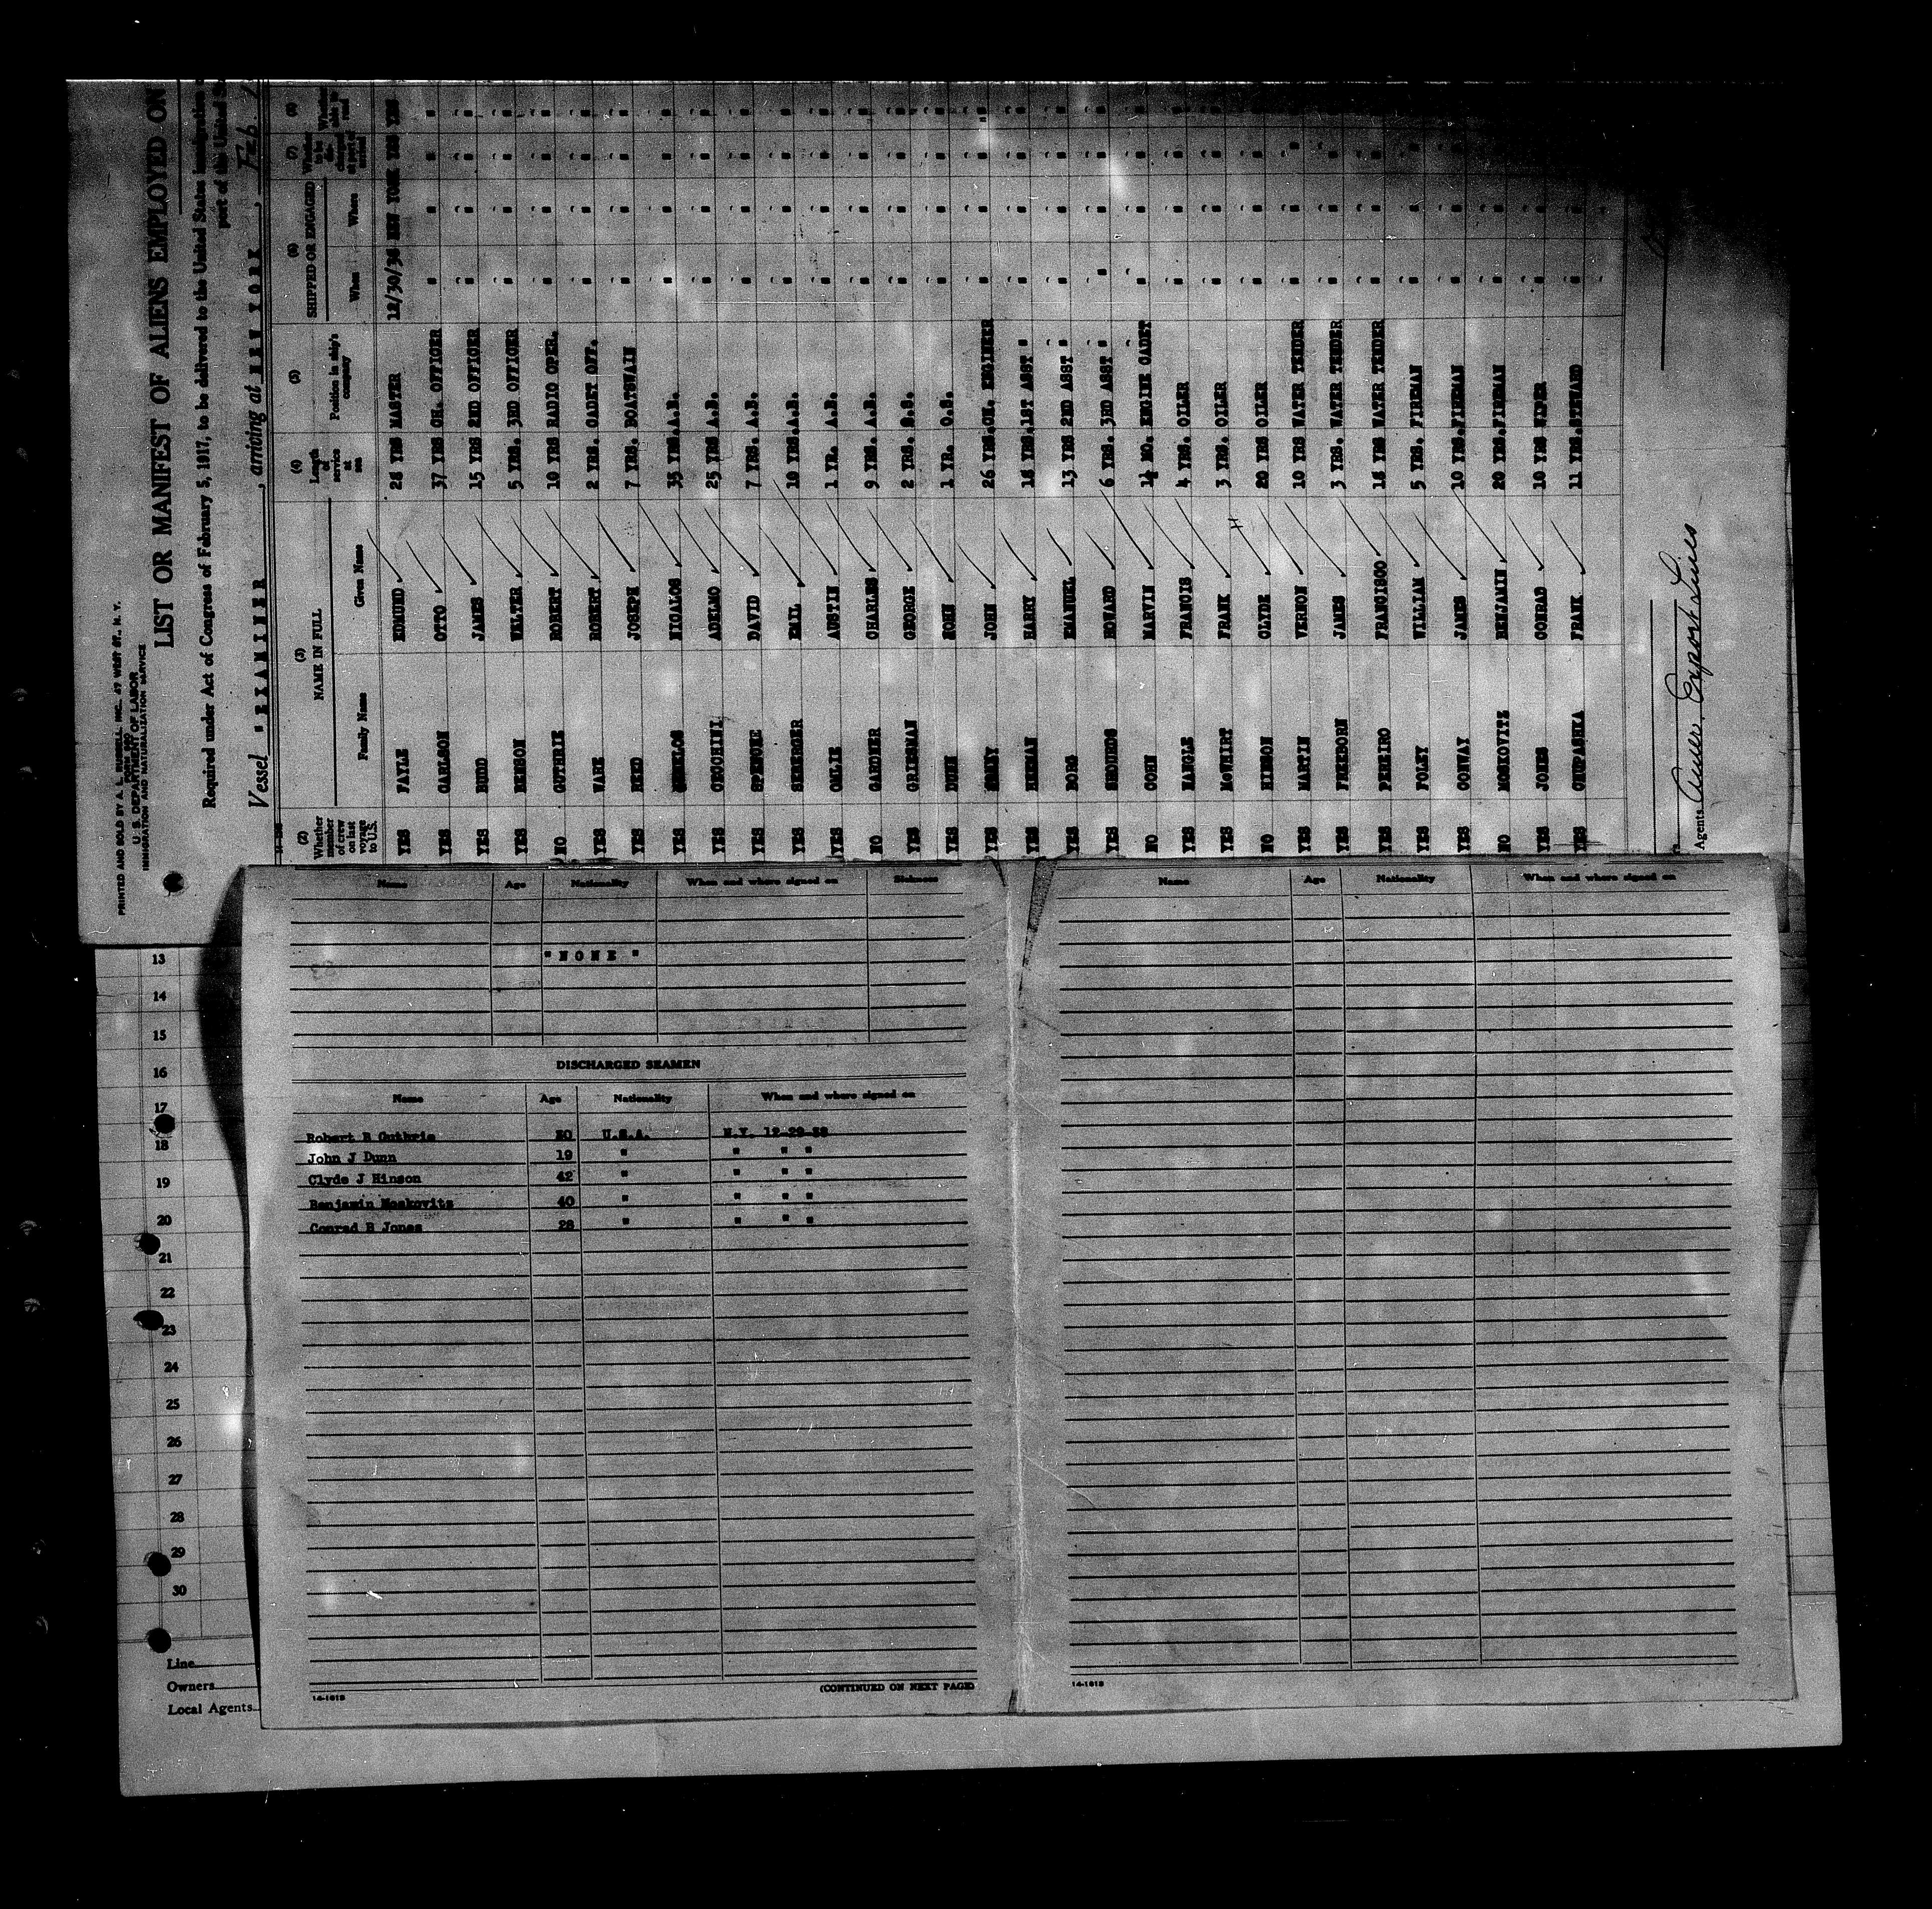 PRINTED AND SOLD BY A. L. RUSSELL, INC., 47 WEST ST., N. Y.
U. S. DEPARTMENT OF LABOR
IMMIGRATION AND NATURALIZATION SERVICE
LIST OR MANIFEST OF ALIENS EMPLOYED ON
Required under Act of Congress of February 5, 1917, to be delivered to the United States immigration
port of the United
Vessel "EXAMINER , arriving at NEW YORK , Feb.
(2) (3) (4) (5) (6) (7) (8)
Whether member of crew on last voyage to U.S. NAME IN FULL Length of service at sea Position in ship's company SHIPPED OR ENGAGED
Family Name Given Name When Where
YES FAYLE EDMUND MASTER 12/30/38 NEW YORK YES YES
YES CARLSON OTTO 37 YRS CH. OFFICER " " " "
YES BUDD JAMES 15 YRS 2ND OFFICER " " " "
YES BENSON WALTER 5 YRS. 3RD OFFICER " " " "
NO GUTHRIE ROBERT 10 YRS RADIO OPER. " " " "
YES WARE ROBERT 2 YRS. CADET OFF. " " " "
YES REED JOSEPH 7 YRS. BOATSWAIN " " " "
YES NICALOS 35 YRS. A.B. " " " "
YES CECCHINI ADELMO 25 YRS A.B. " " " "
YES SPENCE DAVID 7 YRS. A.B. " " " "
YES SEEBERGER EMIL 10 YRS. A.B. " " " "
YES AUSTIN 1 YR. A.B. " " " "
NO GARDNER CHARLES 9 YRS. A.B. " " " "
YES GRIESMAN GEORGE 2 YRS. " " " "
YES DUNN JOHN 1 YR. O.S. " " " "
YES JOHN 26 YRS. CH. ENGINEER " " " "
YES HARRY 1ST ASST " " " " "
YES EMANUEL 13 YRS 2ND ASST " " " " "
YES HOWARD 6 YRS. 3RD ASST " " " " "
NO MARVIN 14 MO. ENGINE CADET " " " "
YES FRANCIS 4 YRS. OILER " " " "
YES MCWHIRT FRANK 3 YRS. OILER " " " "
NO HINSON CLYDE H 20 YRS OILER " " " "
YES MARTIN VERNON 10 YRS WATER TENDER " " " "
YES FREEBORN JAMES 3 YRS. WATER TENDER " " " "
YES PEREIRO FRANCISCO WATER TENDER " " " "
YES FOLEY WILLIAM 5 YRS. FIREMAN " " " "
YES CONWAY JAMES 10 YRS. FIREMAN " " " "
NO MOSKOVITZ BENJAMIN 20 YRS. FIREMAN " " " "
YES JONES CONRAD 10 YRS WIPER " " " "
YES CHUPASHKA FRANK 11 YRS. STEWARD " " " "
Agents Amer. Export Lines
Name Age Nationality When and where signed on Sickness
" N O N E "
DISCHARGED SEAMEN
Name Age Nationality When and where signed on
Robert B Guthrie U.S.A. N.Y. 12-29-38
John J Dunn 19 " " " "
Clyde J Hinson 42 " " " "
Benjamin Moskovitz 40 " " " "
Conrad B Jones 28 " " " "
14-1018 (CONTINUED ON NEXT PAGE)
Name Age Nationality When and where signed on
14-1018
13
14
15
16
17
18
19
20
21
22
23
24
25
26
27
28
29
30
Line
Owners
Local Agents